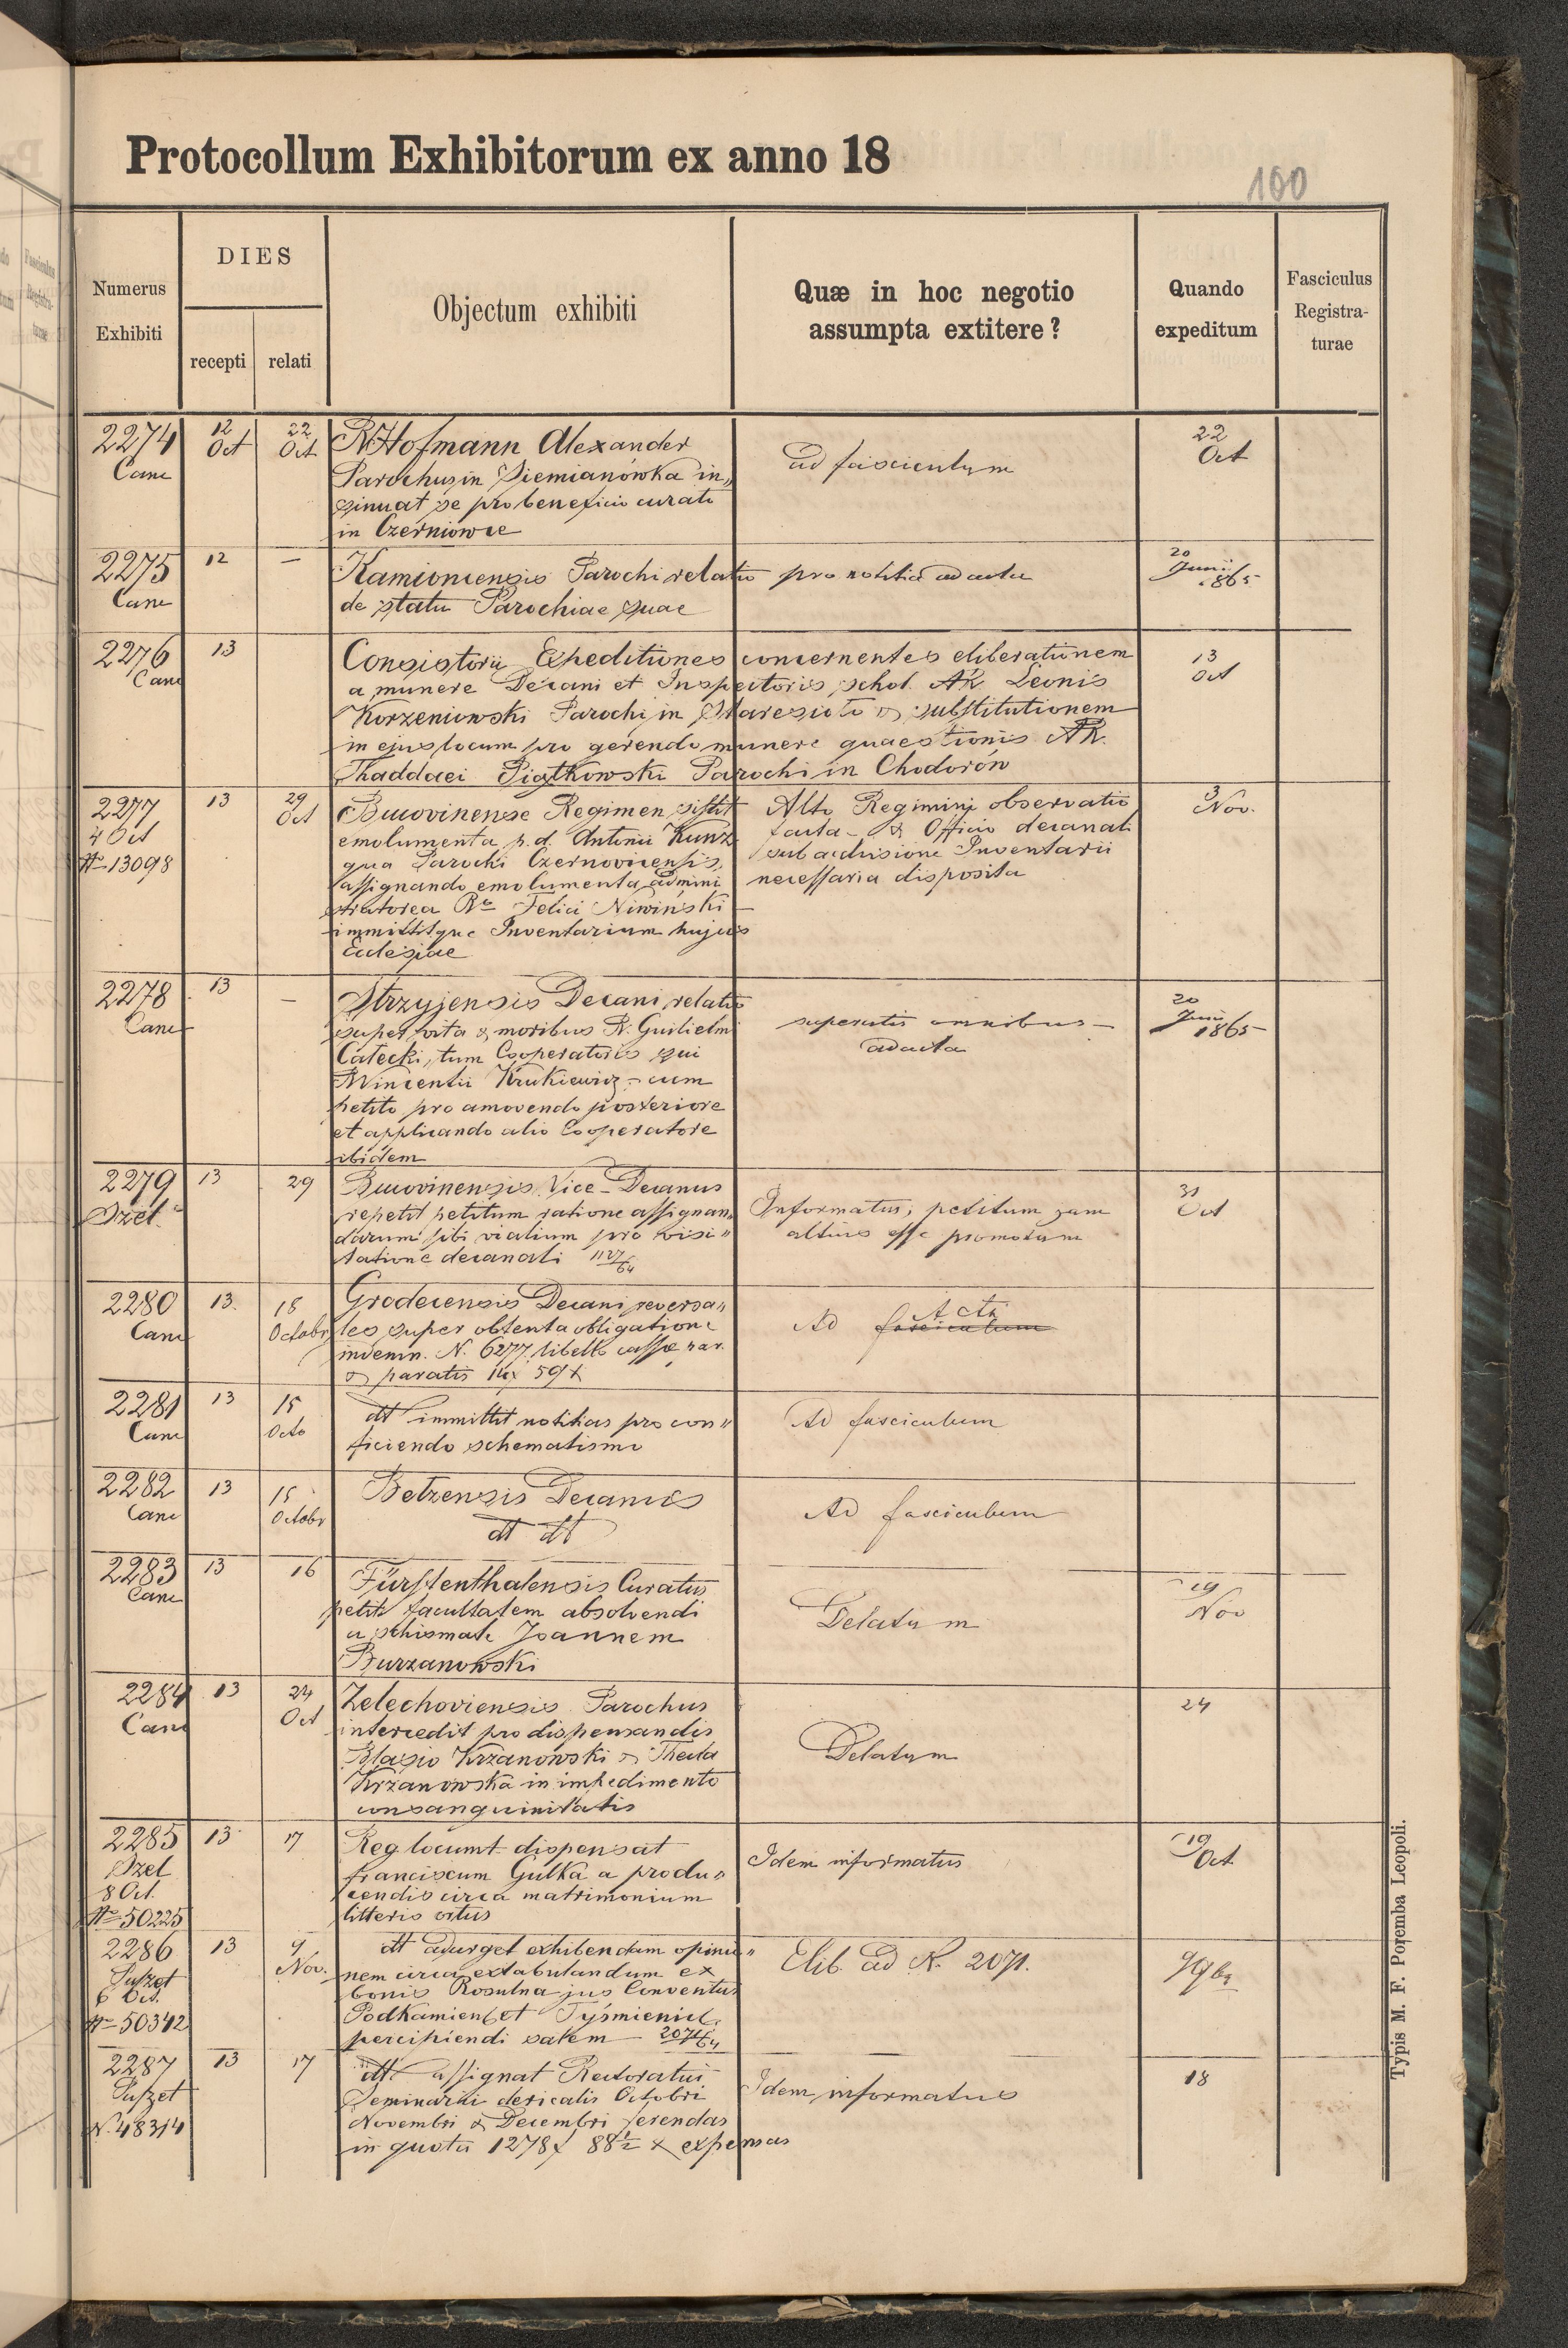 Protocollum Exhibitorum ex anno 18
100
Numerus
Exhibiti
DIES
recepti
relati
Objectum exhibiti
Quæ in hoc negotio
assumpta extitere?
Quando
expeditum
Fasciculus
Registra-
turae
2274
Canc
12
Oct
22
Oct
R. Hofmann Alexander
Parochus in Siemianówka in„
sinuat se pro beneficio curato
in Czerniowce
ad fasciculum
22
Oct
2275
Canc
12
—
Kamionensis Parochi relatio
de statu Parochiae suae
pro notitia ad acta
20
Junii
1865
2276
Canc
13
Consistorii Expeditiones concernentes eliberationem
a munere Decani et Inspectoris schol. AR Leonis
Korzeniowski Parochi in Staresioło & substitutionem
in ejus locum pro gerendo munere quaestionis AR.
Thaddaei Piątkowski Parochi in Chodorów
13
Oct
2277
4 Oct
N= 13098
13
29
Oct
Bucovinense Regimen sistit
emolumenta p. d. Antonii Kunz
qua Parochi Czernoviensis,
assignando emolumenta admini
stratorea Ro Felici Niwiński —
immittitque Inventarium hujus
Ecclesiae
Alto Regimini observatio
facta - & Officio decanali
sub acclusione Inventarii
necessaria disposita
3
Nov.
2278
Canc
13
—
Stryjensis Decani relatio
super vita & moribus R. Guilielmi
Całecki, tum Cooperatoris sui
Wincentii Krukiewicz - cum
petito pro amovendo posteriore
et applicando alio Cooperatore
ibidem
superatis omnibus —
ad acta
20
Juni
1865
2279
Przel.
13
29
Bucovinensis Vice-Decanus
repetit petitum ratione assignan„
darum sibi vialium pro visi„
tatione decanali 1127/64
Informatus, petitum jam
altius esse promotum
31
Oct
2280
Canc
13.
18
Octobr
Grodecensis Decani reversa„
les super obtenta obligatione
indemn. N. 6277. libello cassæ par.
& paratis 14 59x
Ad fasciculum Acta
2281
Canc
13
15
Octo
dt immittit notitias pro con„
ficiendo schematismo
Ad fasciculum
2282
Canc
13
15
Octobr
Belzensis Decanus
dt dt
Ad fasciculum
2283
Canc
13
16
Fürstenthalensis Curatus
petit facultatem absolvendi
a schismate Joannem
Burzanowski
Delatum
19
Nov
2284
Canc
13
24
Oct
Zelechoviensis Parochus
intercedit pro dispensandis
Blasio Krzanowski & Thecla
Krzanowska in impedimento
consanguinitatis
Delatum
24
2285
Przel
8 Oct.
N= 50225
13
17
Reg. locumt. dispensat
franciscum Gulka a produ„
cendis circa matrimonium
litteris ortus
Idem informatus
19
Oct
2286
6 Oct.
N= 50342
13
9
Nov.
dt adurget exhibendam opinio„
nem circa extabulandum ex
bonis Rosulna jus Conventus
Podkamien et Tyśmienic.
percipiendi salem — 2071/64
Elib. ad N. 2071.
9/9br
2287
N. 48314
13
17
dt assignat Rectoratui
Seminarii clericalis Octobri
Novembri & Decembri ferendas
in quota 1278 f 88½ x expensas
Idem informatus
18
Typis M. F. Poremba Leopoli.